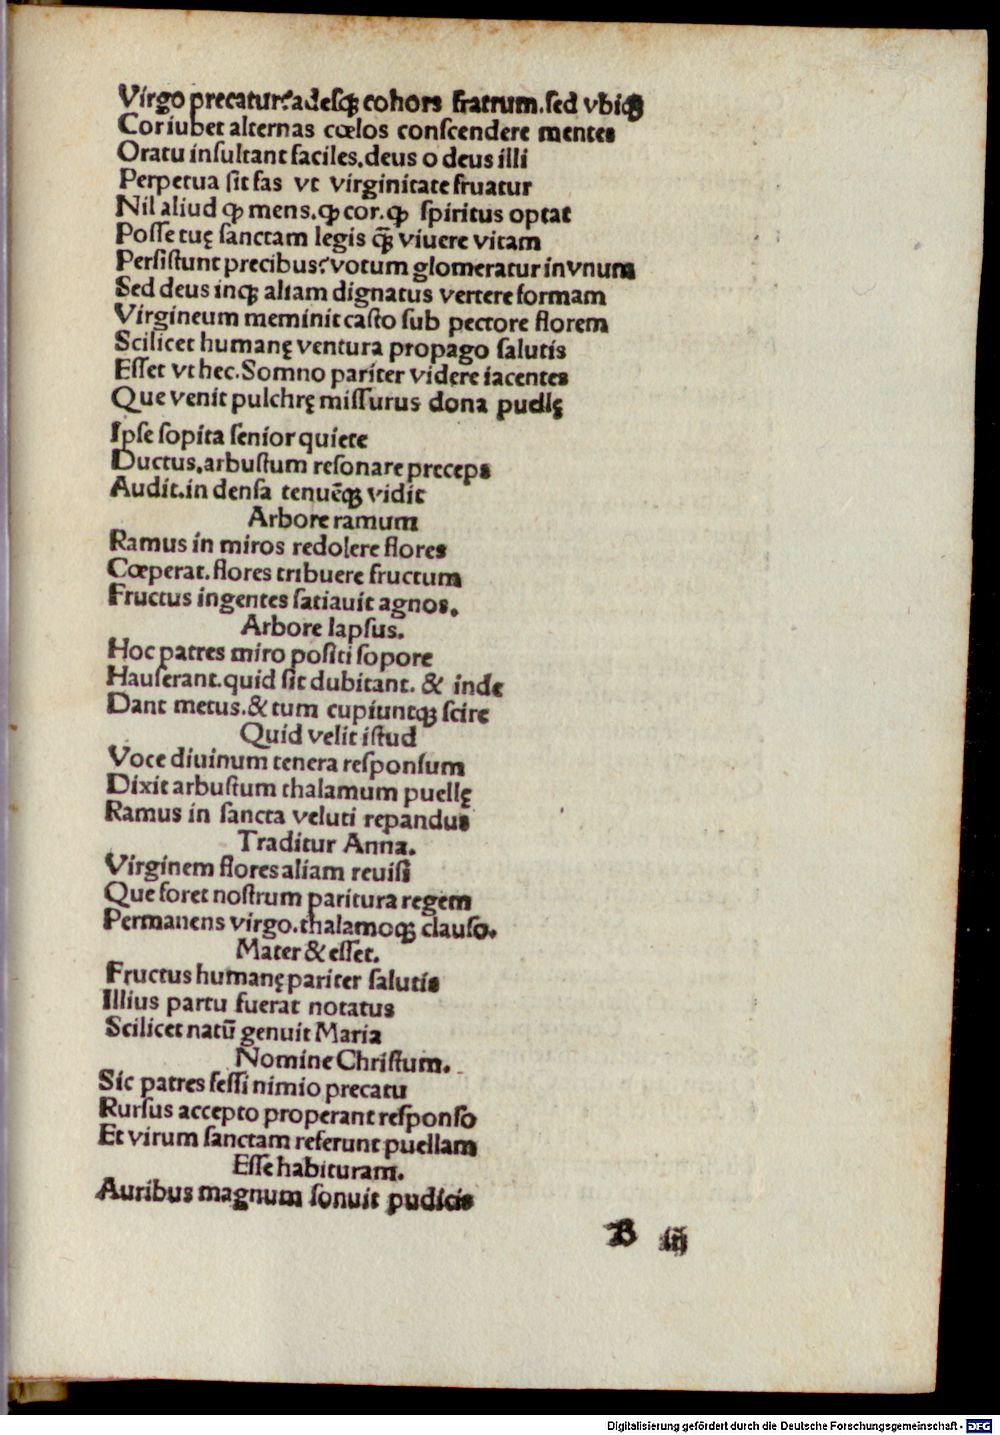 Virgo precatur:adesqꝫ cohors fratrum.sed vbiqꝫ
Cor iubet alternas cœlos conscendere mentes
Oratu insultant faciles.deus o deus illi
Perpetua sit fas vt virginitate fruatur
Nil aliud ꝙ mens.ꝙ cor.ꝙ spiritus optat
Posse tuę sanctam legis q̃ꝫ viuere vitam
Persistunt precibus:votum glomeratur in vnum
Sed deus inqꝫ aliam dignatus vertere formam
Virgineum meminit casto sub pectore florem
Scilicet humanę ventura propago salutis
Esset vt hec.Somno pariter videre iacentes
Que venit pulchrę missurus dona puellę
Ipse sopita senior quiete
Ductus.arbustum resonare preceps
Audit.in densa tenuẽqꝫ vidit
Arbore ramum
Ramus in miros redolere flores
Cœperat.flores tribuere fructum
Fructus ingentes satiauit agnos.
Arbore lapsus.
Hoc patres miro positi sopore
Hauserant.quid sit dubitant. & inde
Dant metus.& tum cupiuntqꝫ scire
Quid velit istud
Voce diuinum tenera responsum
Dixit arbustum thalamum puellę
Ramus in sancta veluti repandus
Traditur Anna.
Virginem flores aliam reuisi
Que foret nostrum paritura regem
Permanens virgo.thalamoqꝫ clauso.
Mater & esset.
Fructus humanę pariter salutis
Illius partu fuerat notatus
Scilicet natũ genuit Maria
Nomine Christum.
Sic patres fessi nimio precatu
Rursus accepto properant responso
Et virum sanctam referunt puellam
Esse habituram.
Auribus magnum sonuit pudicis
B iij
Digitalisierung gefördert durch die Deutsche Forschungsgemeinschaft - DFG